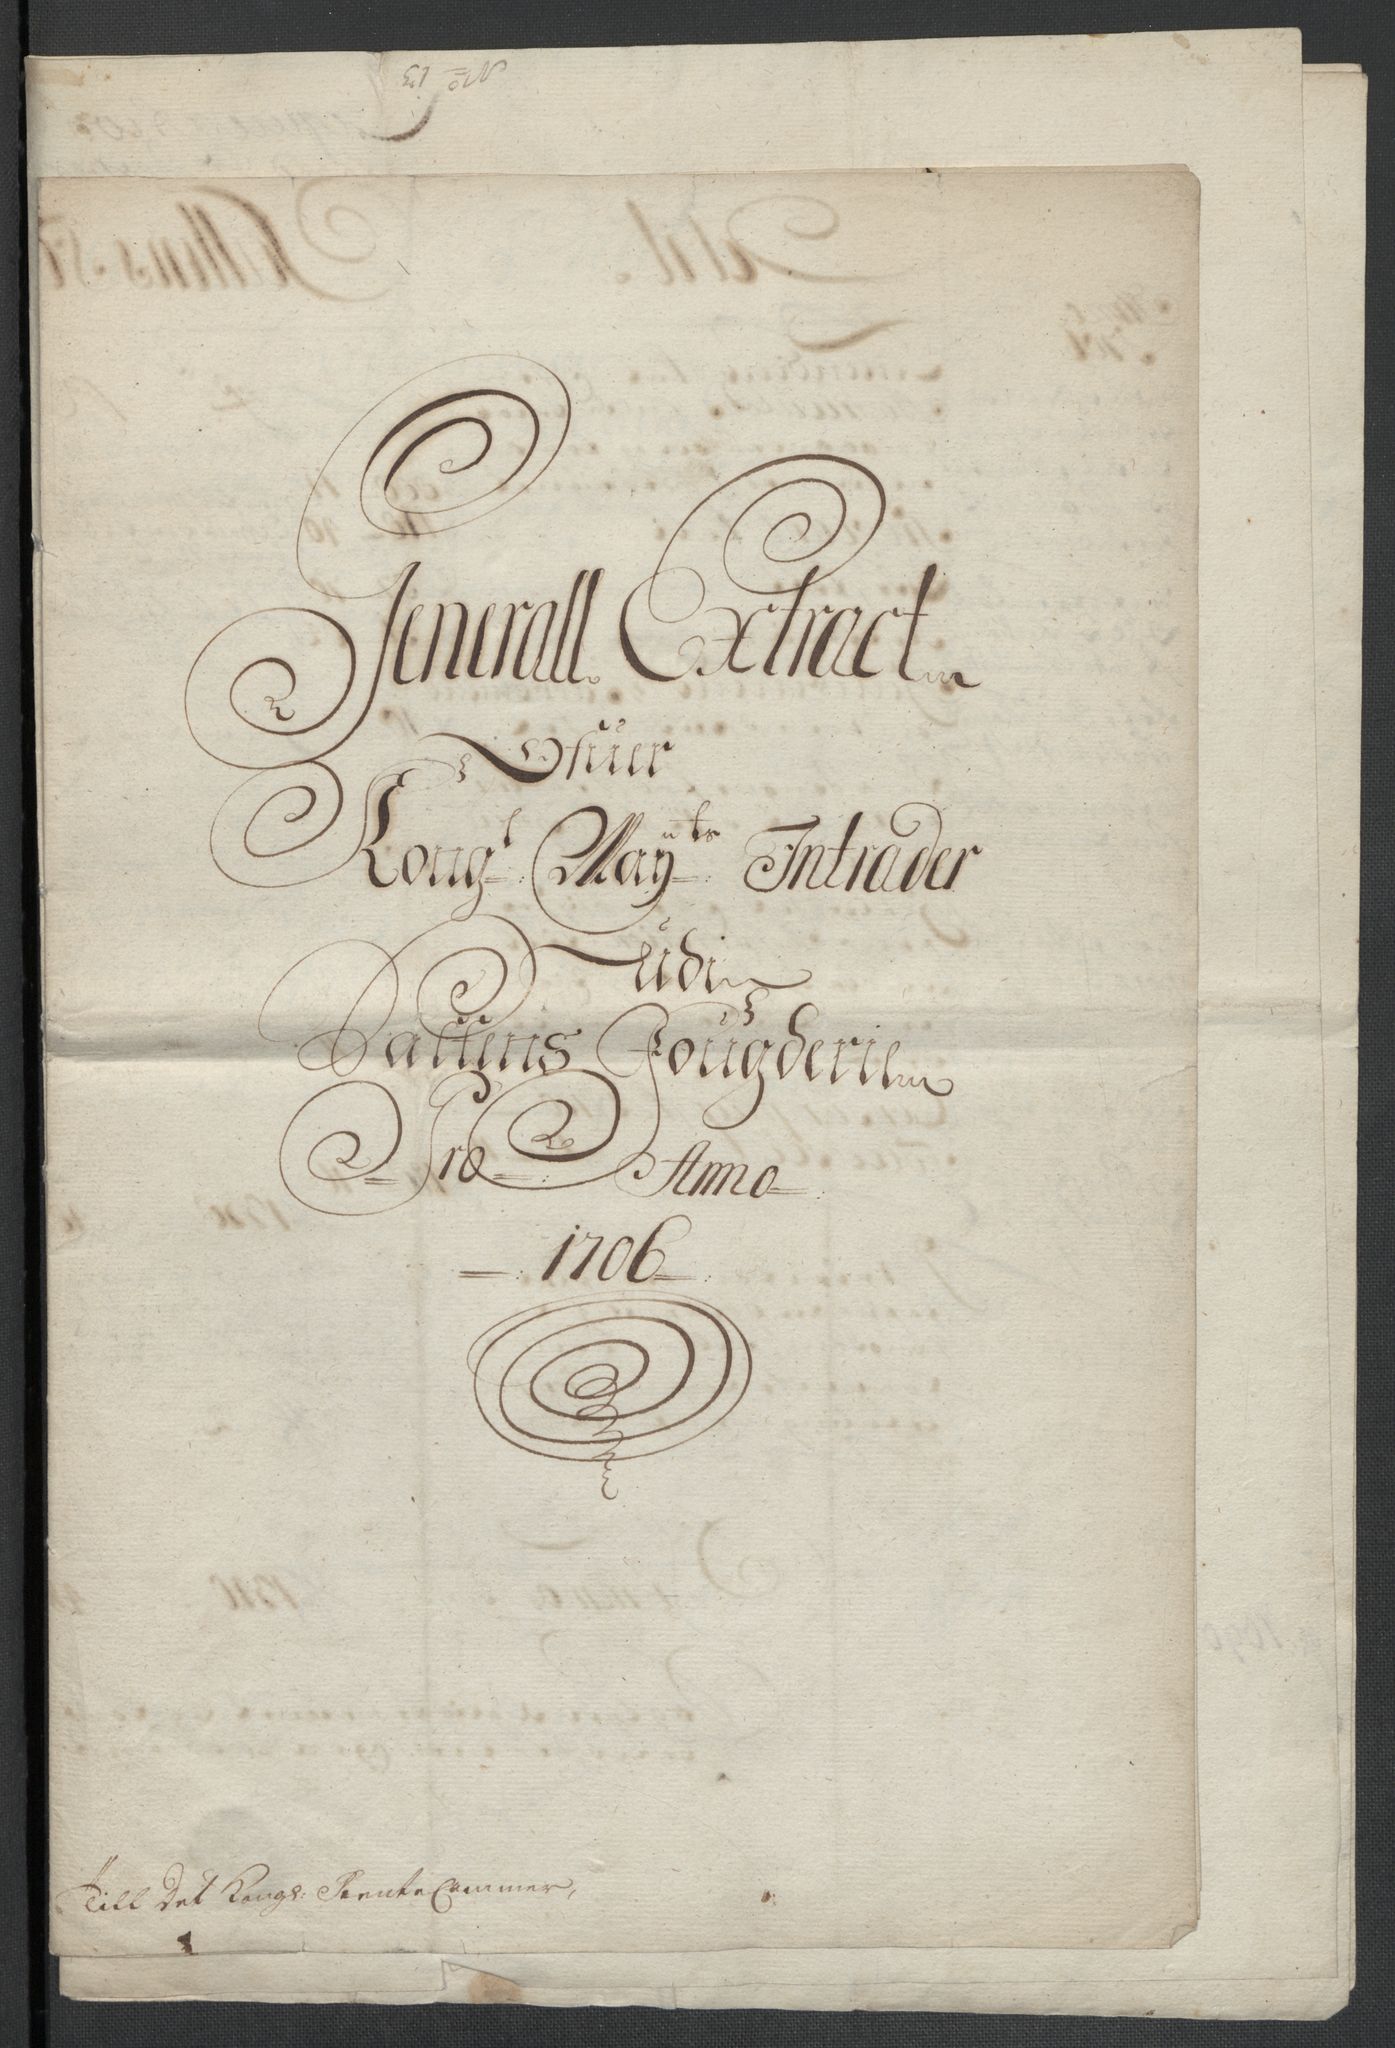 No 13
Generall Extract
Ofuer
Kongl Mayts Intrader
Udi
Saltens Fougderie
Pro Anno
1706
Till Det Kongl: Rente Cammer,